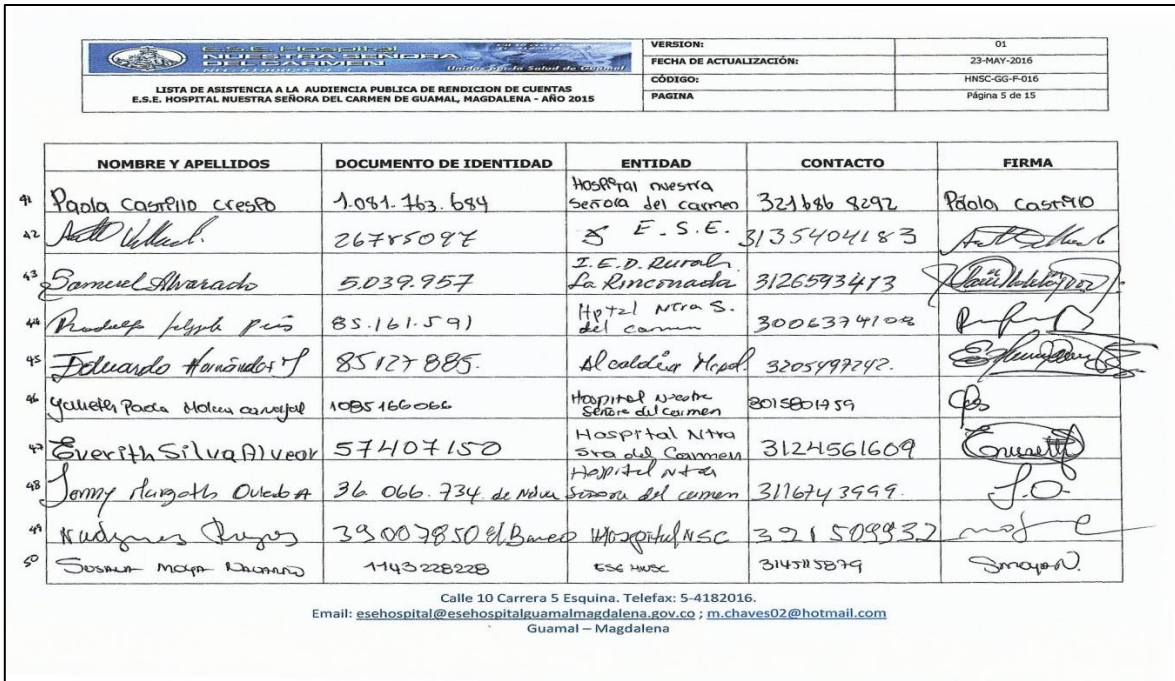 E.S.E. Hospital
NUESTRA SEÑORA
DEL CARMEN
Unidos por la Salud de Guamal
LISTA DE ASISTENCIA A LA AUDIENCIA PUBLICA DE RENDICION DE CUENTAS
E.S.E. HOSPITAL NUESTRA SEÑORA DEL CARMEN DE GUAMAL, MAGDALENA - AÑO 2015
VERSION: 01
FECHA DE ACTUALIZACIÓN: 23-MAY-2016
CÓDIGO: HNSC-GG-F-016
PAGINA Página 5 de 15
NOMBRE Y APELLIDOS DOCUMENTO DE IDENTIDAD ENTIDAD CONTACTO FIRMA
41 Paola Castrillo Crespo 1.081.763.684 Hospital nuestra
señora del carmen 321686 8292 Paola Castrillo
42 26785097 E.S.E. 3135404183
43 Samuel Alvarado 5.039.957 I.E.D. Rural
La Rinconada 3126593473
44 85.161.591 Hptal Ntra S.
del carmen 3006374108
45 Eduardo Hernández 85127885. Alcaldia 3205497242.
46 Paola 1085166066 Hospital Nuestra
Señora del carmen 3015801959
47 Everith Silva Alvear 57407150 Hospital Ntra
Sra del Carmen 3124561609
48 Oviedo A 36.066.734. de Hospital Ntra
Señora del carmen 3116743999. J.O.
49 39007850 El Banco Hospital NSC 321509932
50 Susana Moya Navarro 1143228228 ESE HNSC 3145115879 Smoya N.
Calle 10 Carrera 5 Esquina. Telefax: 5-4182016.
Email: esehospital@esehospitalguamalmagdalena.gov.co ; m.chaves02@hotmail.com
Guamal – Magdalena